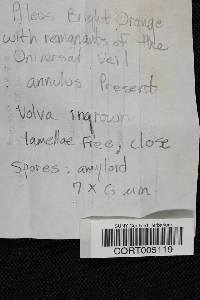 Pileus Bright Orange
with remanants of the
Universal Veil
annulus Present
Volva ingrown
lamellae free, close
Spores: amyloid
7 x 6 um
SUNY Cortland Herbarium
CORT005119